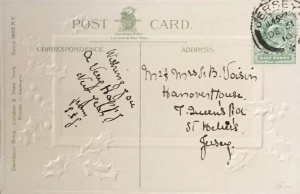 POST CARD.
CORRESPONDENCE
ADDRESS.
Wishing you
a Very Happy
New Year
from
Mr & Mrs B. Voisin
Hanover House
7 Queens Rd
St Heliers
Jersey
JERSEY
DE 31
10
HALF PENNY